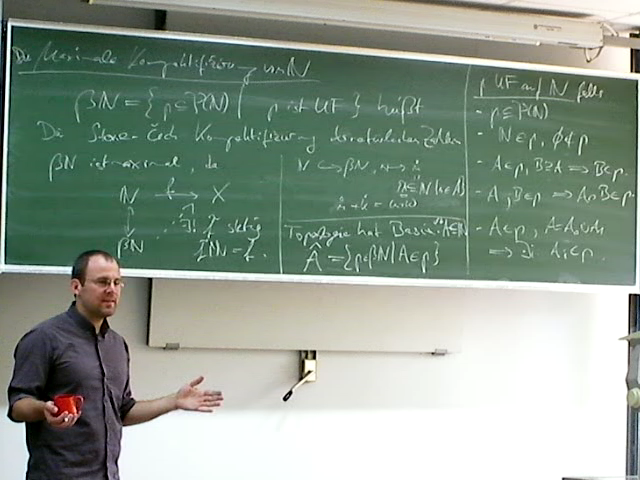 Die Maximale Kompaktifizierung von ℕ
βℕ = { p ⊆ P(ℕ) | p ist UF } heißt
Die Stone-Čech Kompaktifizierung der natürlichen Zahlen
βℕ ist maximal, da
ℕ —f→ X
βℕ
∃! f̃ stetig
f̃|ℕ = f.
ℕ ↪ βℕ, n ↦
Topologie hat Basis
Â = {p∈βℕ | A∈p}
p UF auf ℕ falls
- p ⊆ P(ℕ)
- ℕ∈p, ∅∉p
- A∈p, B⊇A ⟹ B∈p.
- A, B∈p ⟹ A∩B∈p
- A∈p, A=A₀∪A₁
⟹ ∃i Aᵢ∈p.